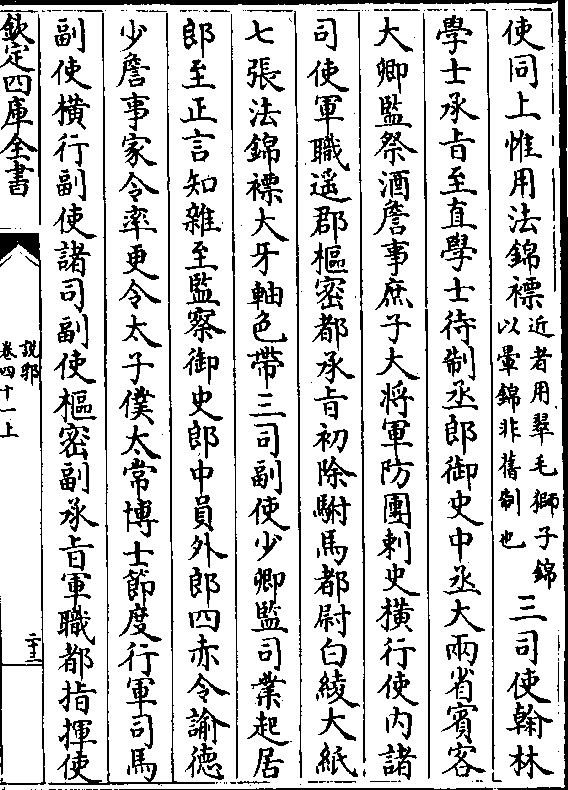 使同上惟用法錦褾近者用翠毛獅子錦以暈錦非舊制也三司使翰林
學士承㫖至直學士待制丞郎御史中丞大兩省賔客
大卿監祭酒詹事庶子大將軍防團刺史橫行使内諸
司使軍職遥郡樞密都承㫖初除駙馬都尉白綾大紙
七張法錦褾大牙軸色帶三司副使少卿監司業起居
郎至正言知雜至監察御史郎中員外郎四赤令諭德
少詹事家令率更令太子僕太常博士節度行軍司馬
副使橫行副使諸司副使樞密副承㫖軍職都指揮使
欽定四庫全書
說郛
卷四十一上
二十三